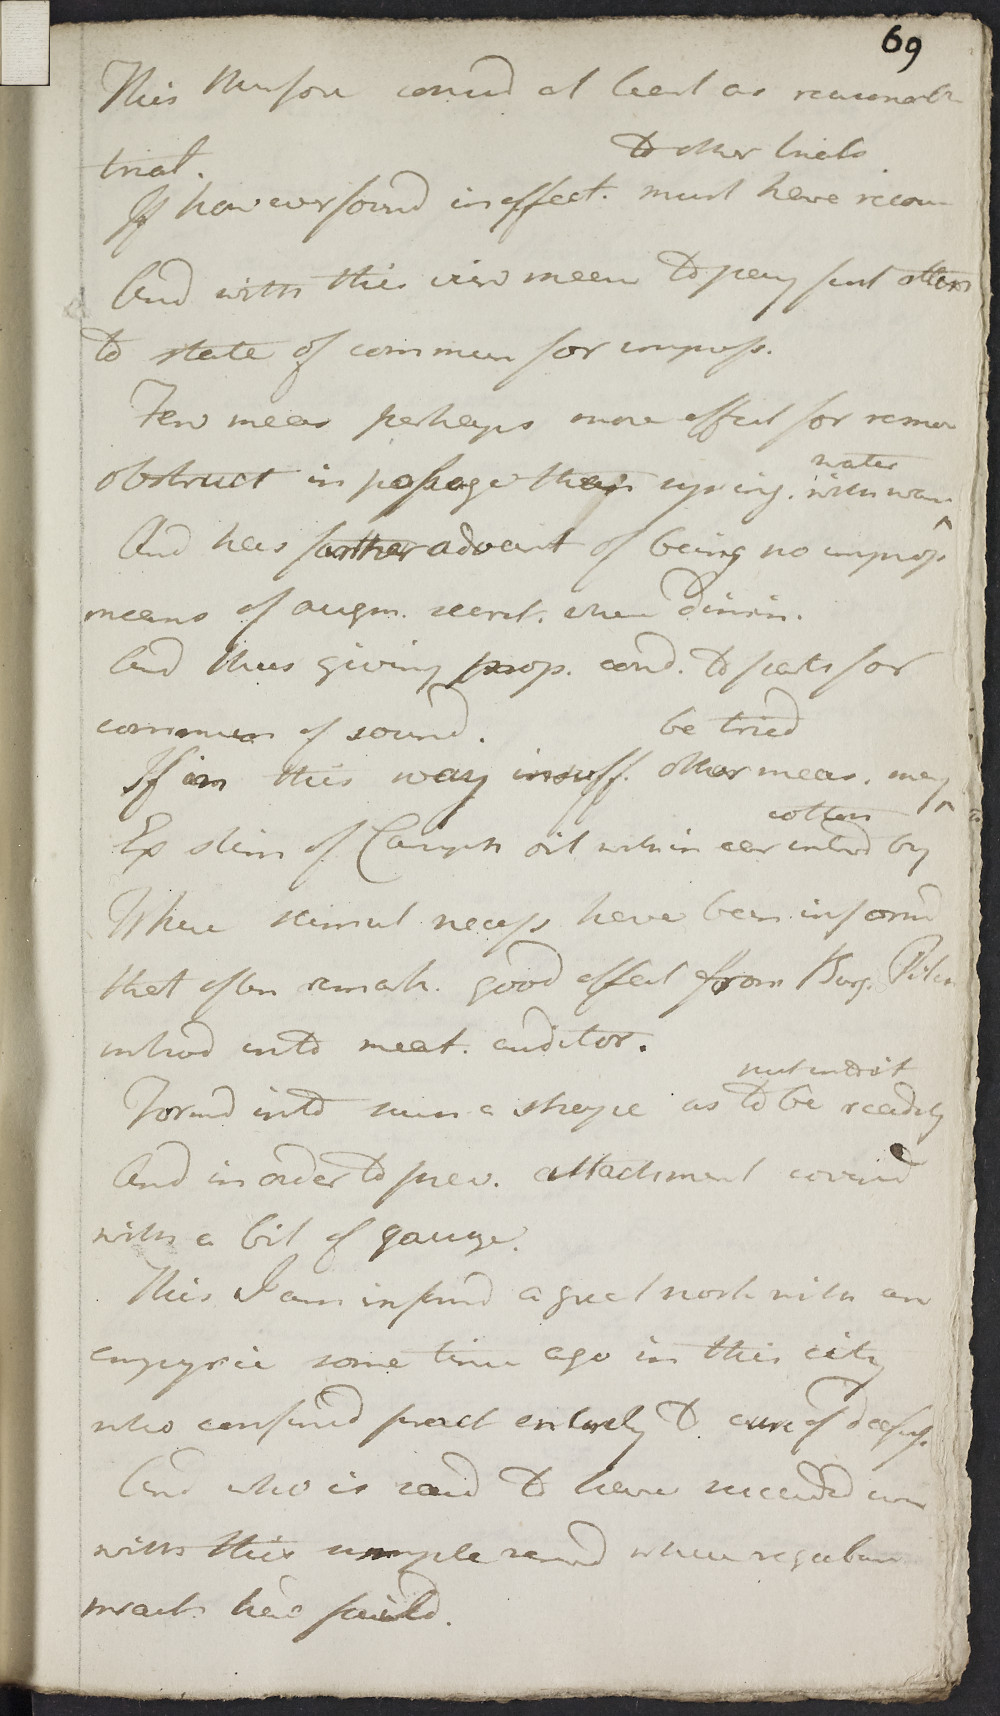 69
This therefore consid at least as reasonable
trial.
to other trials
If however found ineffect. must have recou
And with this view mean to pay part atten
to state of commun for improp.
Few meas perhaps more effect for remov
obstruct in passage than syring. with warm
water
And has farther advant of being no improp
means of augm. secret. when dimin.
And thus giving prop. cond. to parts for
commun of sound.
be tried
If in this way insuff. other meas. may
cotton
Ex stim of Camph oil within ear introd by
Where stimul necess have been inform
that often remark. good effect from Burg. Pitch
introd into meat. auditor.
put into it
Formd into such a shape as to be readily
And in order to prev. attachment coverd
with a bit of gauze.
This I am informd a great nostr with an
empyric some time ago in this city
who confined pract entirely to cure of deafness.
And who is said to have succeeded
with this simple remed where regular
pract. had faild.